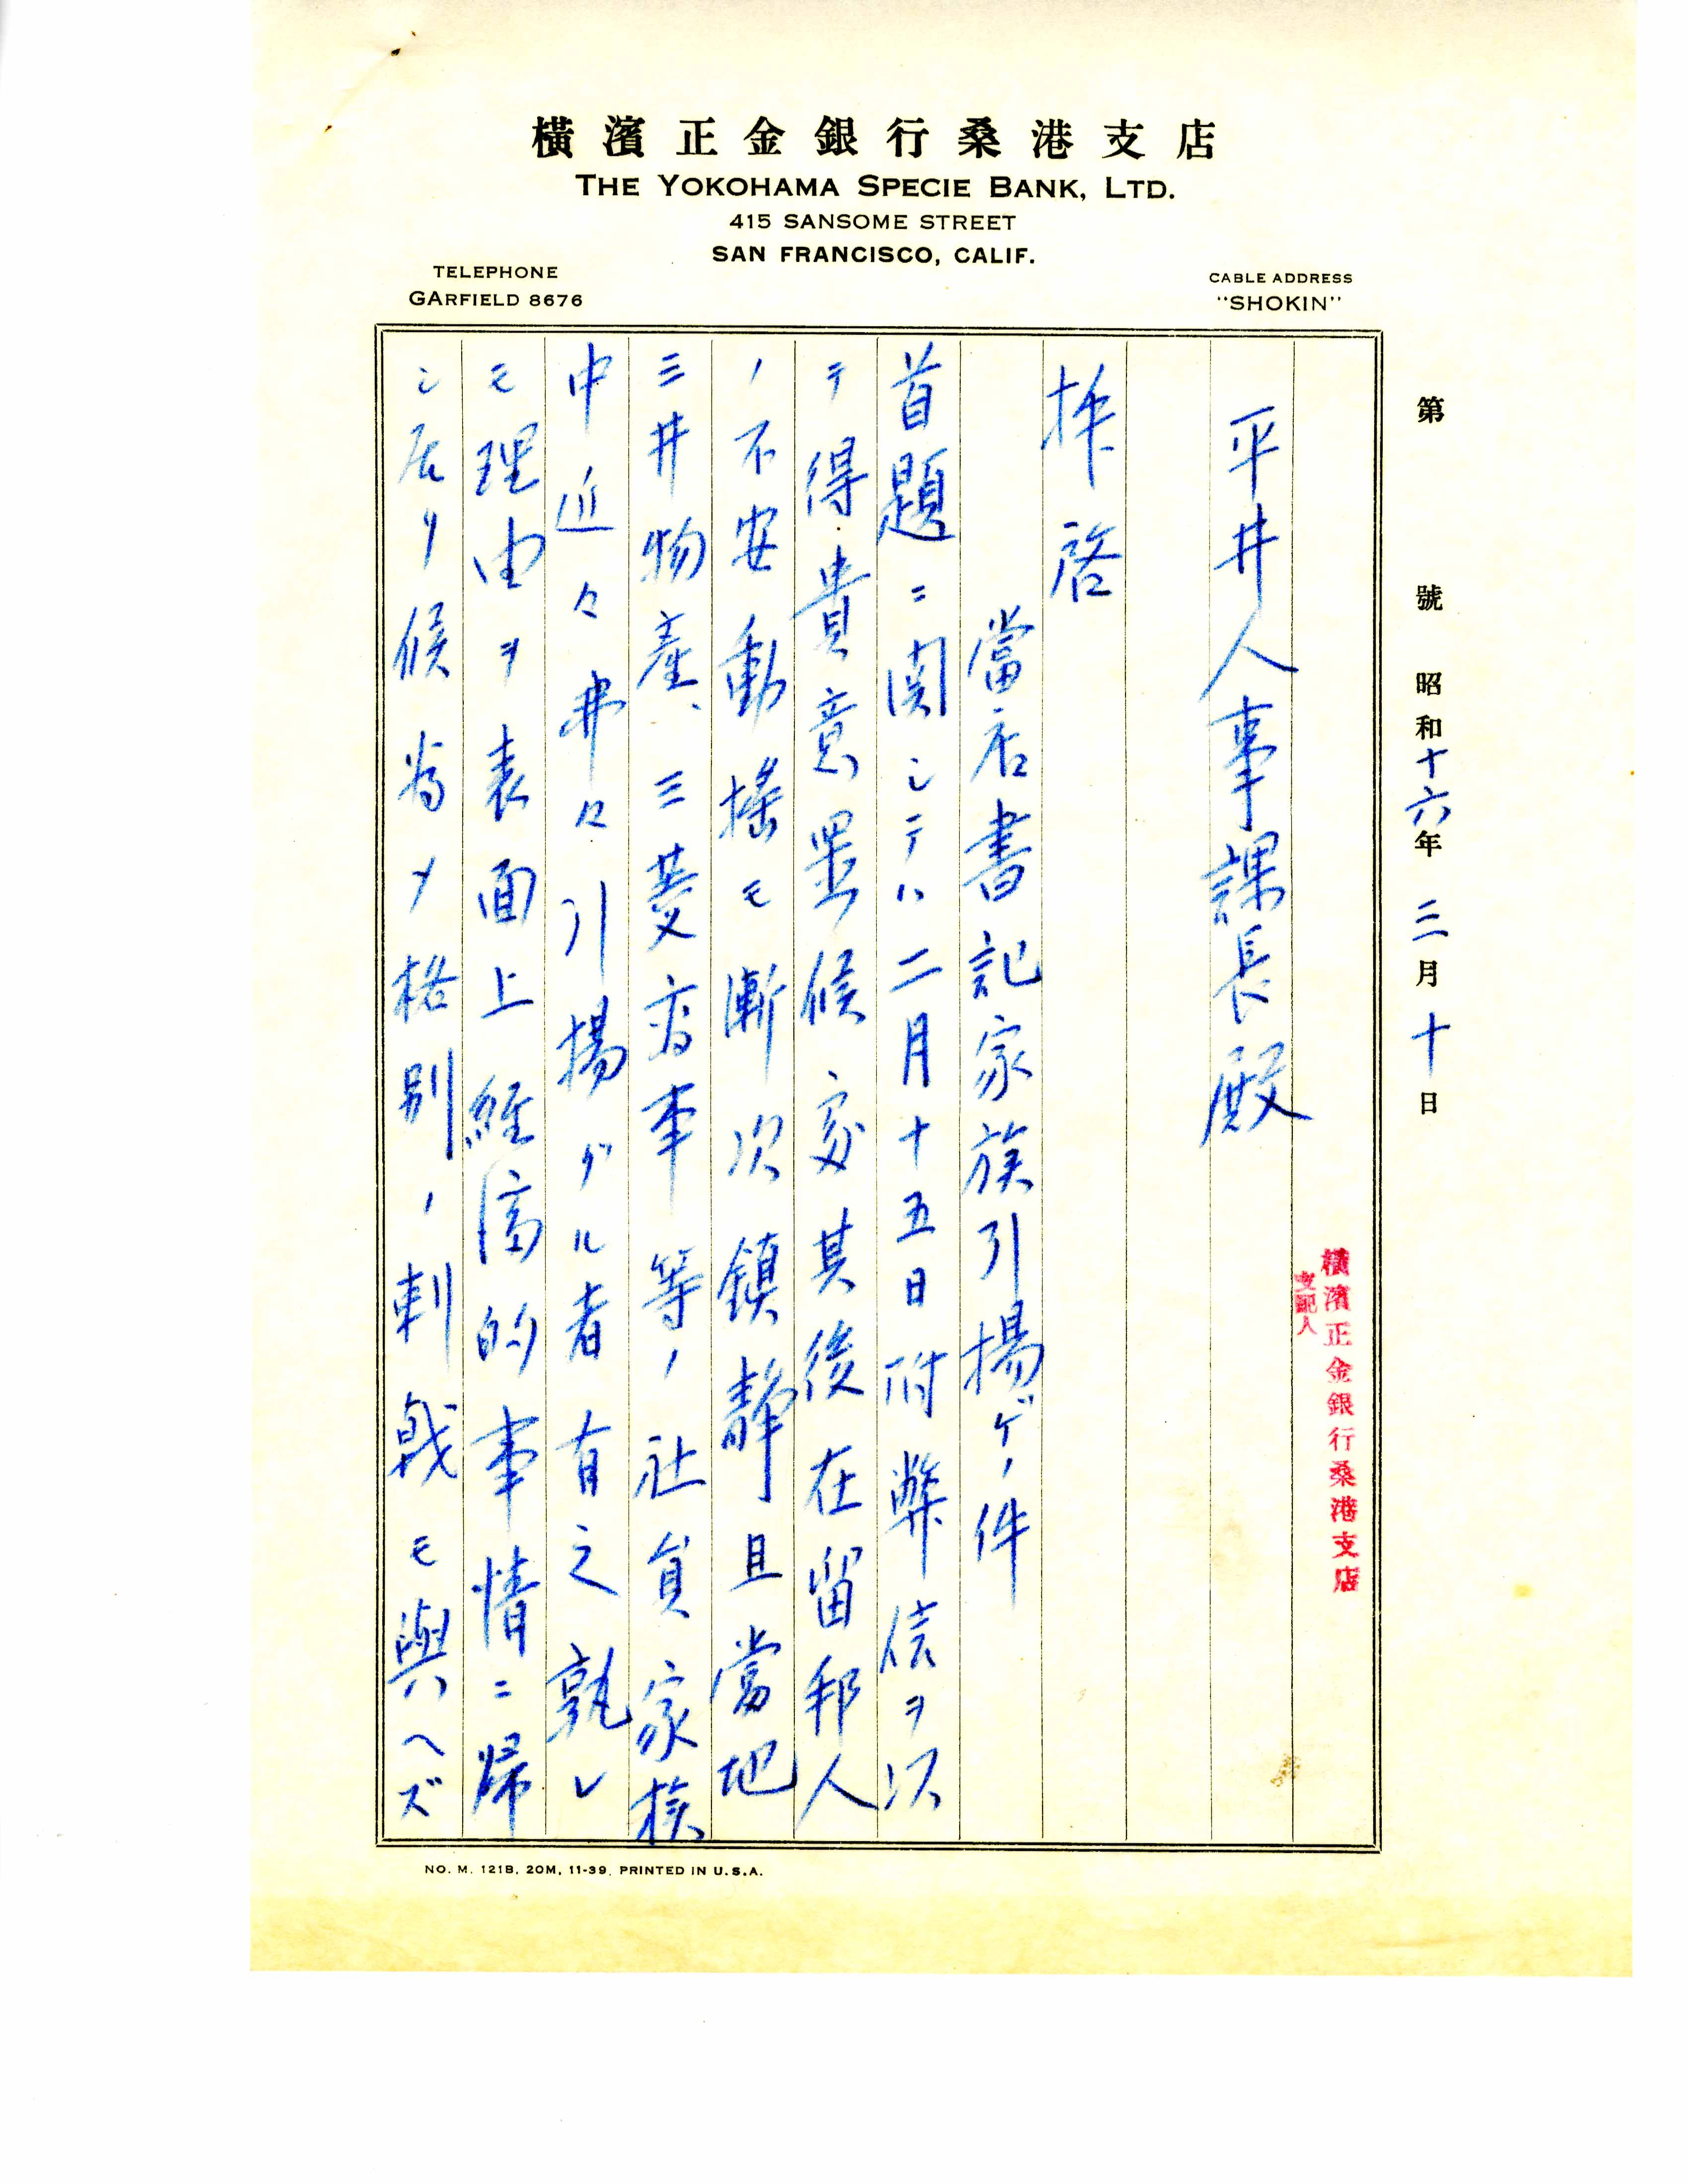 橫濱正金銀行桑港支店
THE YOKOHAMA SPECIE BANK, LTD.
415 SANSOME STREET
SAN FRANCISCO, CALIF.
TELEPHONE
GARFIELD 8676
CABLE ADDRESS
"SHOKIN"
第 號 昭和十六年 三月十日
橫濱正金銀行桑港支店
支配人
平井人事課長殿
拝啓
當店書記家族引揚ゲノ件
首題ニ関シテハ二月十五日附弊信ヲ以
テ得貴意置候処其後在留邦人
ノ不安動揺モ漸次鎮静且當地
三井物産、三菱商事等ノ社員家族
中近々弗々引揚グル者有之孰レ
モ理由ヲ表面上経済的事情ニ帰
シ居リ候為メ格別ノ刺戟モ與ヘズ
NO. M. 121B. 20M, 11-39. PRINTED IN U.S.A.